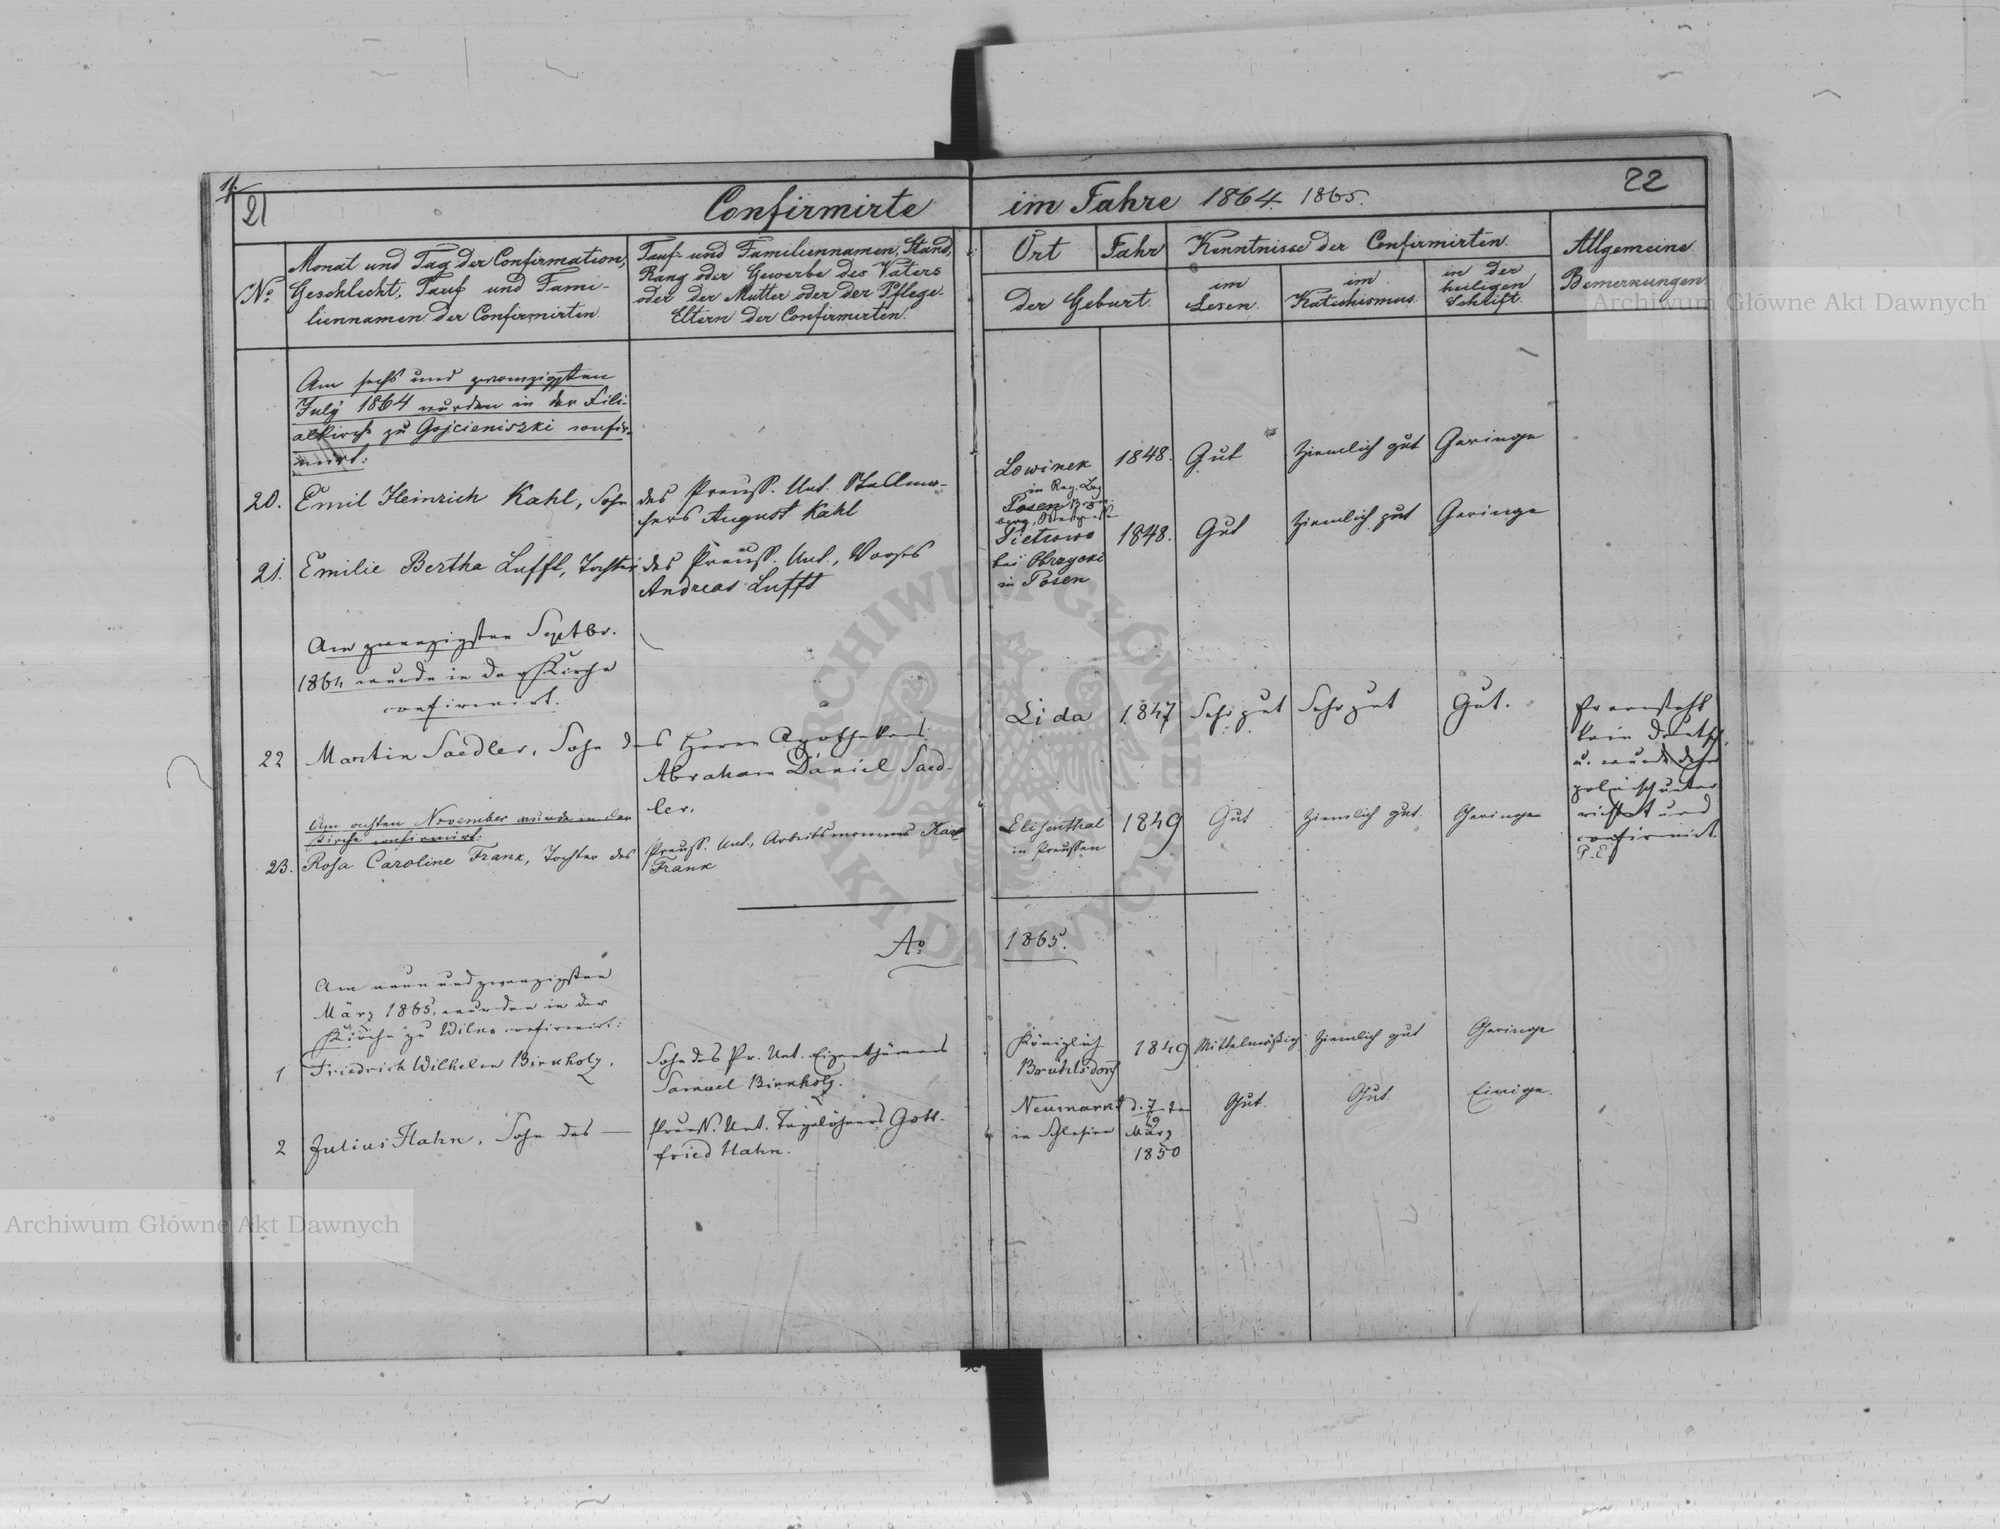 11.
21
22
Confirmirte im Jahre 1864. 1865.
No.
Monat und Tag der Confirmation,
Geschlecht, Tauf und Fami-
liennamen der Confirmirten.
Tauf- und Familiennamen, Stand,
Rang oder Gewerbe des Vaters
oder der Mutter oder der Pflege-
Eltern der Confirmirten.
Ort
Jahr
der Geburt.
Kenntnisse der Confirmirten.
im
Lesen.
im
Katechismus.
in der
heiligen
Schrift.
Allgemeine
Bemerkungen.
Am sechs und zwanzigsten
July 1864 wurden in der Fili-
alkirche zu Gojcieniszki confir-
mirt:
20. Emil Heinrich Kahl, Sohn
des Preuss. Unt. Stellma-
chers August Kahl
Lowinek
in Reg. Bez.
Posen Brom-
berg,
1848. Gut Ziemlich gut Geringe
21. Emilie Bertha Lufft, Tochter
des Preuss. Unt.,
Andreas Lufft
Pietrowo
bei Obrzycki
in Posen
1848. Gut Ziemlich gut Geringe
Am zwanzigsten Septbr.
1864 wurde in der Kirche
confirmirt.
22 Martin Saedler, Sohn des Herrn Apothekers
Abraham Daniel Saed-
ler.
Lida 1847 Sehr gut Sehr gut Gut.
Er versteht
kein Deutsch,
u. wurde daher
polnisch unter
richtet und
confirmirt.
P. E.
Am achten November wurde in der
Kirche confirmirt:
23. Rosa Caroline Frank, Tochter des
Preuss. Unt., Arbeitsmannes Karl
Frank
Elisenthal
in Preussen
1849 Gut Ziemlich gut. Geringe
Ao. 1865.
Am neun und zwanzigsten
März 1865, wurden in der
Kirche zu Wilno confirmirt:
1 Friedrich Wilhelm Birkholz,
Sohn des Pr. Unt. Eigenthümers
Samuel Birkholz.
Königlich
Brühlsdorf
1849 Mittelmässig Ziemlich gut Geringe
2 Julius Hahn, Sohn des —
Preuss. Unt. Tagelöhners Gott-
fried Hahn.
Neumarkt
in Schlesien
d. 7 ten
März
1850
Gut. Gut. Einige.
Archiwum Główne Akt Dawnych
Archiwum Główne Akt Dawnych
ARCHIWUM GŁÓWNE AKT DAWNYCH